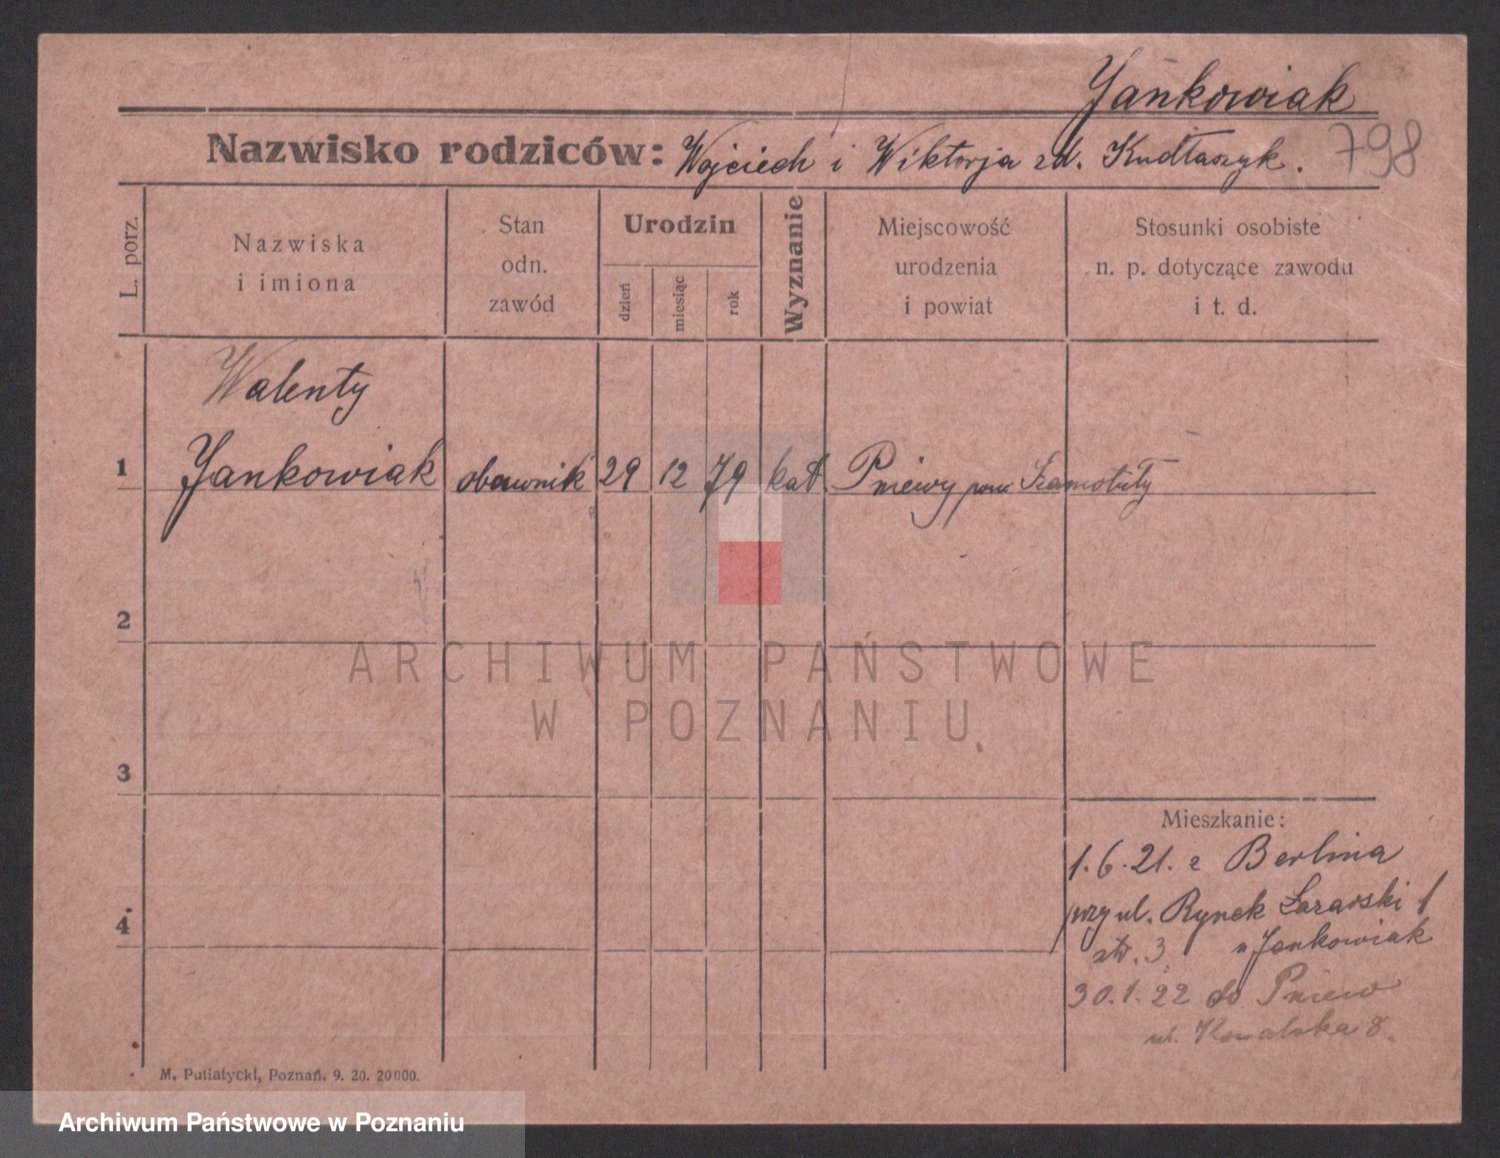 Jankowiak
Nazwisko rodziców: Wojciech i Wiktorja zd. Kudłaszyk. 798
L. porz.
Nazwiska
i imiona
Stan
odn.
zawód
Urodzin
dzień
miesiąc
rok
Wyznanie
Miejscowość
urodzenia
i powiat
Stosunki osobiste
n. p. dotyczące zawodu
i t. d.
Walenty
1 Jankowiak obuwnik 29 12 79 kat Pniewy pow Szamotuły
2
ARCHIWUM PAŃSTWOWE
W POZNANIU
3
Mieszkanie:
1.6.21. z Berlina
4 przy ul. Rynek Łazarski 1
3 u Jankowiak
30.1.22 do Pniew
ul. Kowalska 8.
M. Putiatycki, Poznań. 9. 20. 20000.
Archiwum Państwowe w Poznaniu